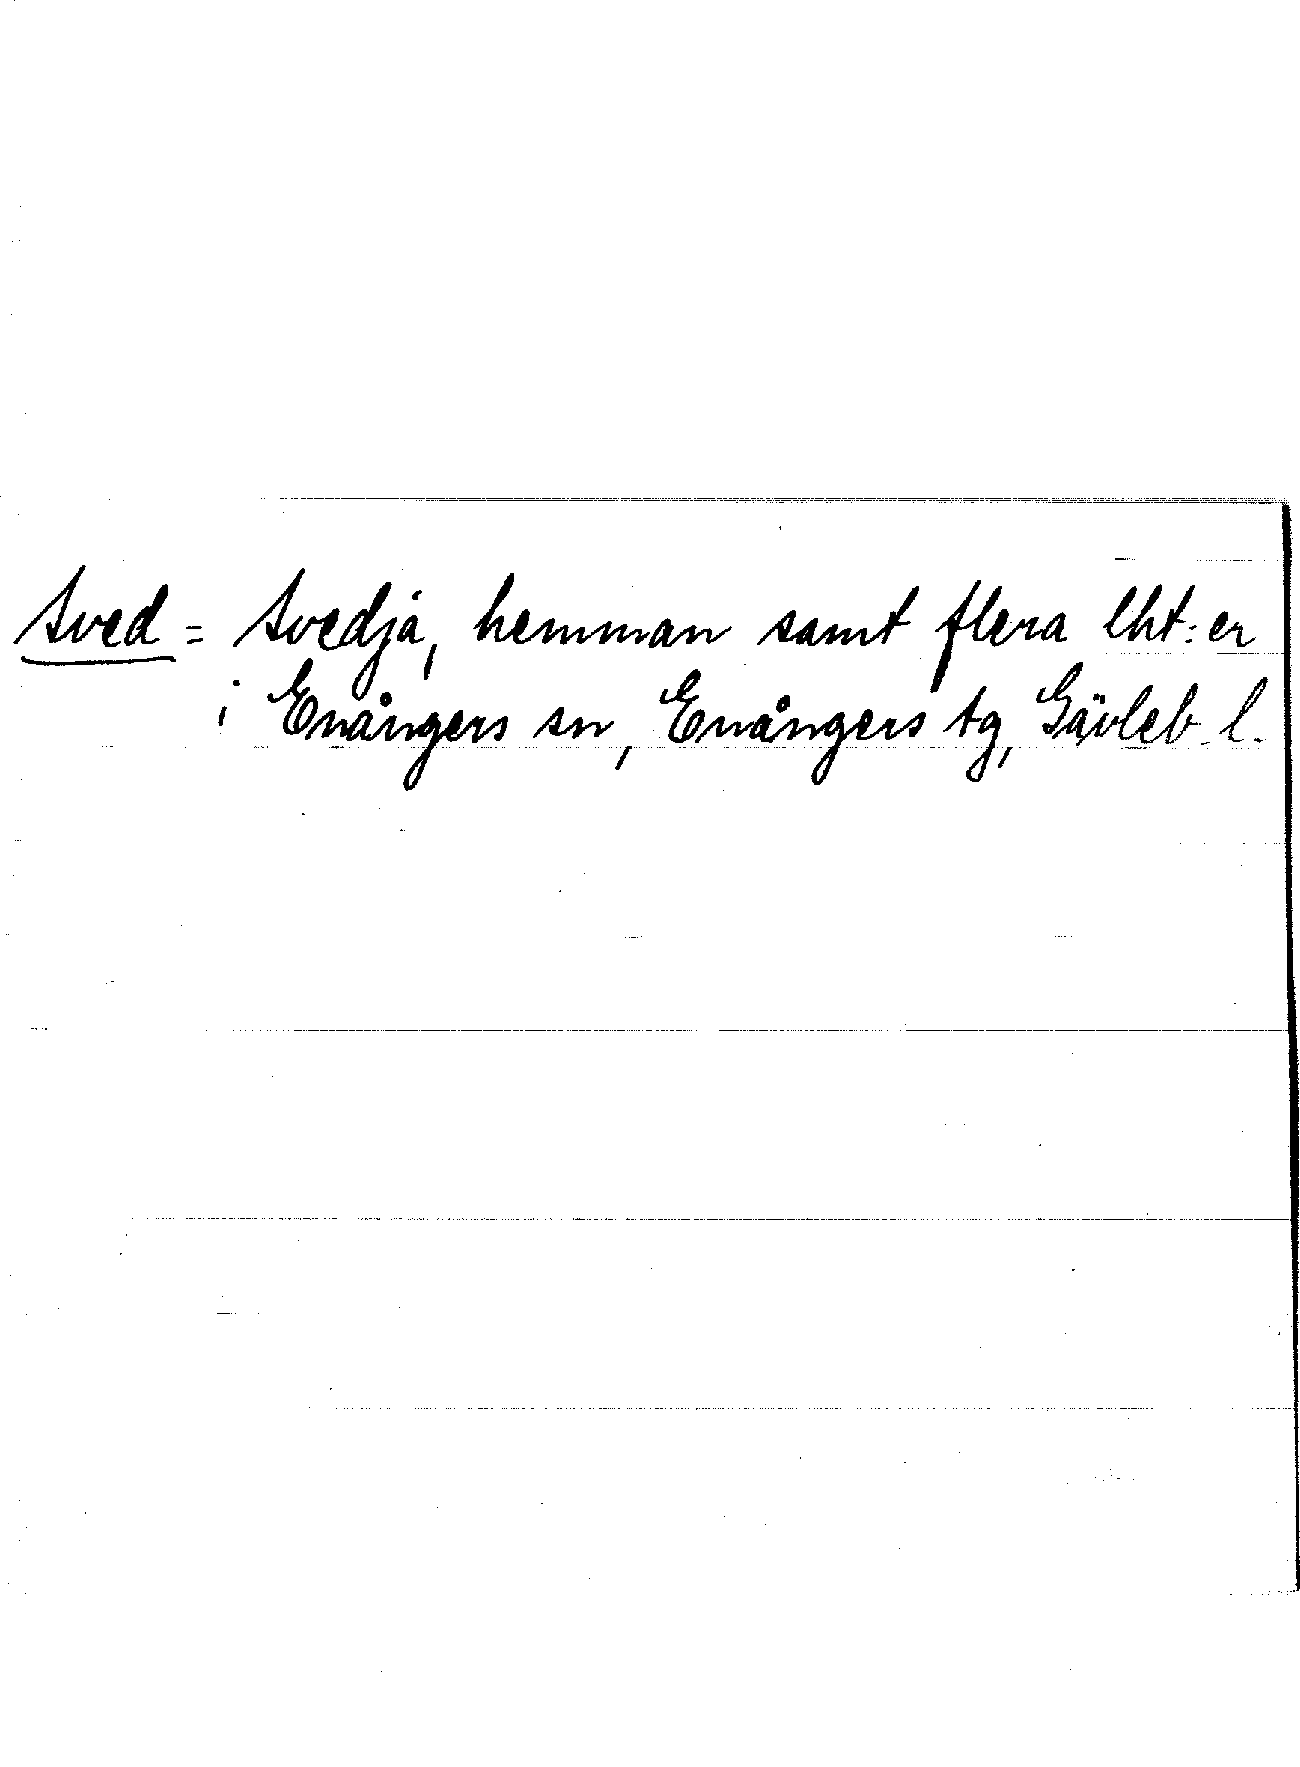 Sved = Svedjå, hemman samt flera lht:er
i Enångers sn, Enångers tg, Gävleb. l.